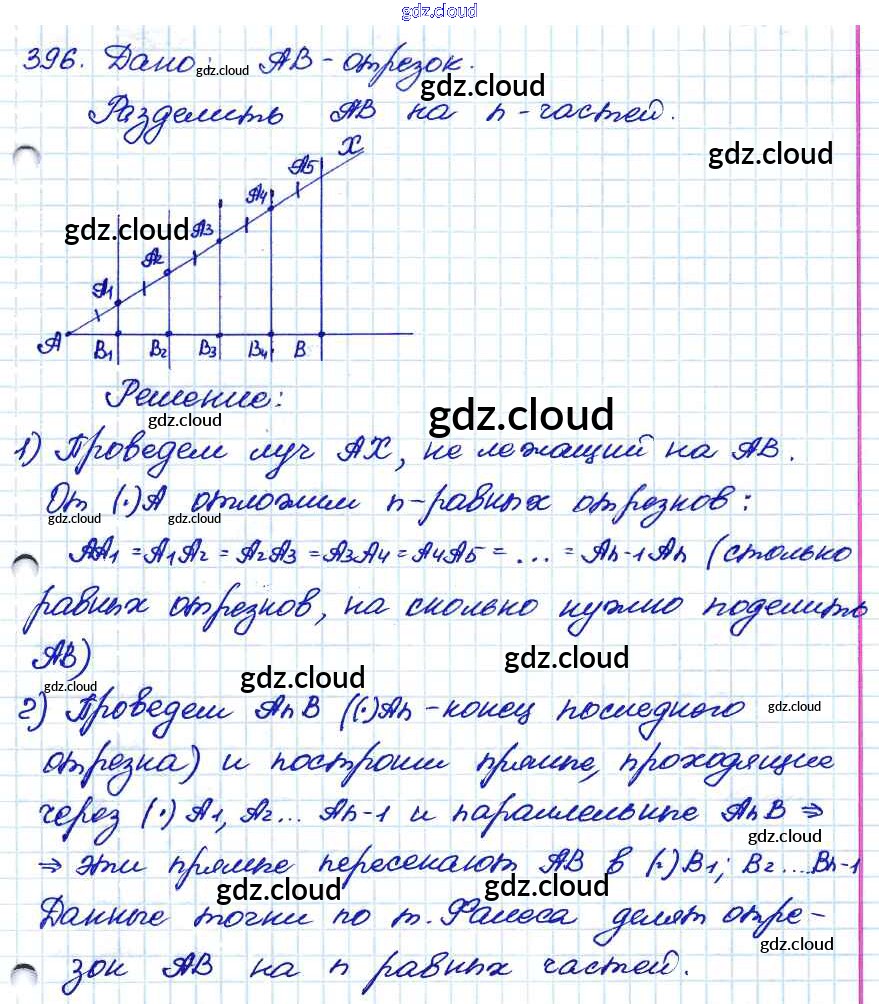 gdz.cloud
396. Дано: АВ - отрезок.
gdz.cloud
gdz.cloud
Разделить АВ на n-частей.
gdz.cloud
X
A5
A4
gdz.cloud
A3
A2
A1
A B1 B2 B3 B4 B
Решение:
gdz.cloud
gdz.cloud
1) Проведем луч АХ, не лежащий на АВ.
От (·)А отложим n-равных отрезков:
gdz.cloud gdz.cloud
AA1 = A1A2 = A2A3 = A3A4 = A4A5 = ... = An-1An (столько
равных отрезков, на сколько нужно поделить
АВ)
gdz.cloud
gdz.cloud
gdz.cloud
2) Проведем AnB ((·)An - конец последного
gdz.cloud
отрезка) и построим прямые, проходящие
через (·) A1, A2... An-1 и параллельные AnB ⇒
gdz.cloud
⇒ эти прямые пересекают АВ в (·) B1; B2 ... Bn-1
gdz.cloud gdz.cloud
Данные точки по т. Фалеса делят отре-
gdz.cloud
зок АВ на n равных частей.